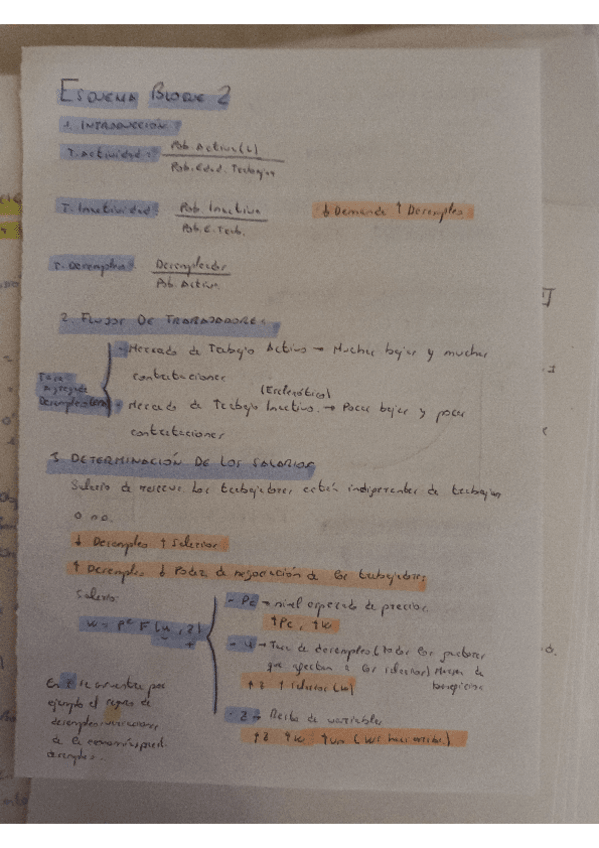 ESQUEMA BLOQUE 2
1. INTRODUCCIÓN:
T. actividad: Pob. Activa (L)
Pob. Edad. Trabajar
T. Inactividad: Pob. Inactiva
Pob. E. Trab.
↓ Demanda ↑ Desempleo
T. Desempleo: Desempleados
Pob. Activa
2. FLUJOS DE TRABAJADORES:
Tasa agregada Desempleo
→ Mercado de Trabajo Activo → Muchas bajas y muchas
contrataciones
(Esclerótico)
→ Mercado de Trabajo Inactivo. → Pocas bajas y pocas
contrataciones
3. DETERMINACIÓN DE LOS SALARIOS
Salario de reserva: Los trabajadores están indiferentes de trabajar
o no.
↓ Desempleo ↑ Salarios
↑ Desempleo ↓ Poder de negociación de los trabajadores
Salario:
W = P^e F (u, z)
- +
- Pe → nivel esperado de precios.
↑Pe, ↑W
- u → Tasa de desempleo (todos los factores
que afectan a los salarios)
↑ z ↑ salarios (W)
- z → Resto de variables
↑z ↑W
En z se encuentra por
ejemplo el seguro de
desempleo,
de la economía,
desempleo.